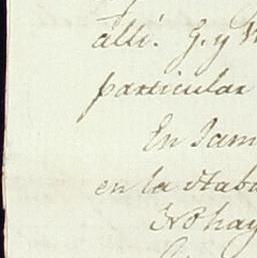 allí. G. y V
particular
En Jam
en la Haba
No hay